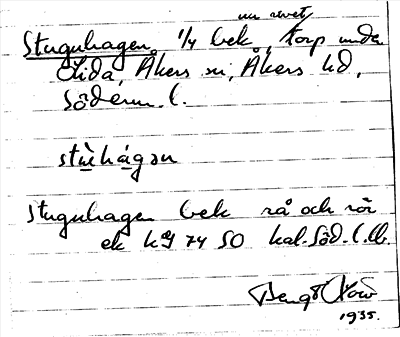 nu rivet
Stuguhagen, 1/4 bek, torp under
Lida, Åkers sn, Åkers hd,
Söderm. l.
stùhágən
Stuguhagen bek rå och rör
ek kg 74 SO kal. Söd. l. llb
Bengt
1935.